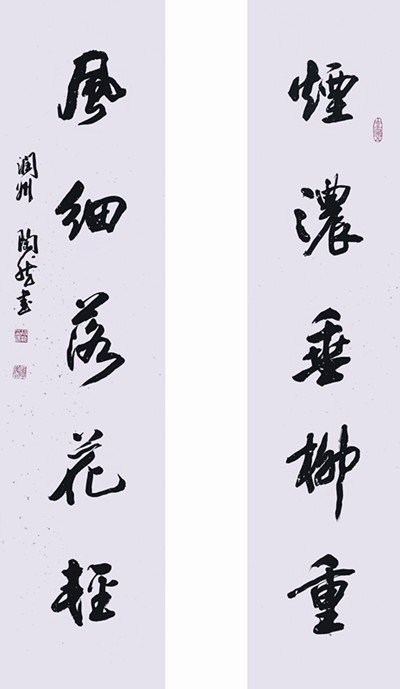 煙濃垂柳重
風細落花輕
潤州
陶然書